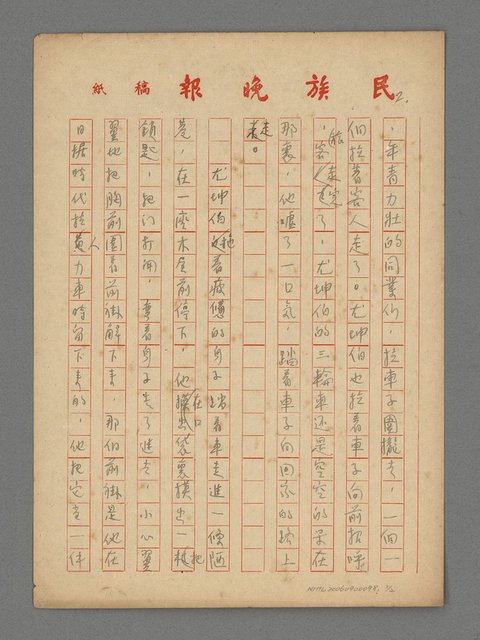 民族晚報稿紙
2.
，年青力壯的同業們，拉車子圍攏來，一個一
個拉着客人走了。尤坤伯也拉着車子向前招呼
，旅客走完了，尤坤伯的三輪車還是空空的呆在
那裏，他噓了一口氣，踏着車子向回家的路上
走着。
尤坤伯拖着疲憊的身子踏着車走進一條陋
巷，在一座木屋前停下，他在口袋裏摸出一把
鎖匙，把門打開，彎着身子走了進去，小心翼
翼地把胸前圍着前掛解下來，那個前掛是他在
日据時代拉黃人力車時留下來的，他把它當一件
NMTL20060900098, 1/2